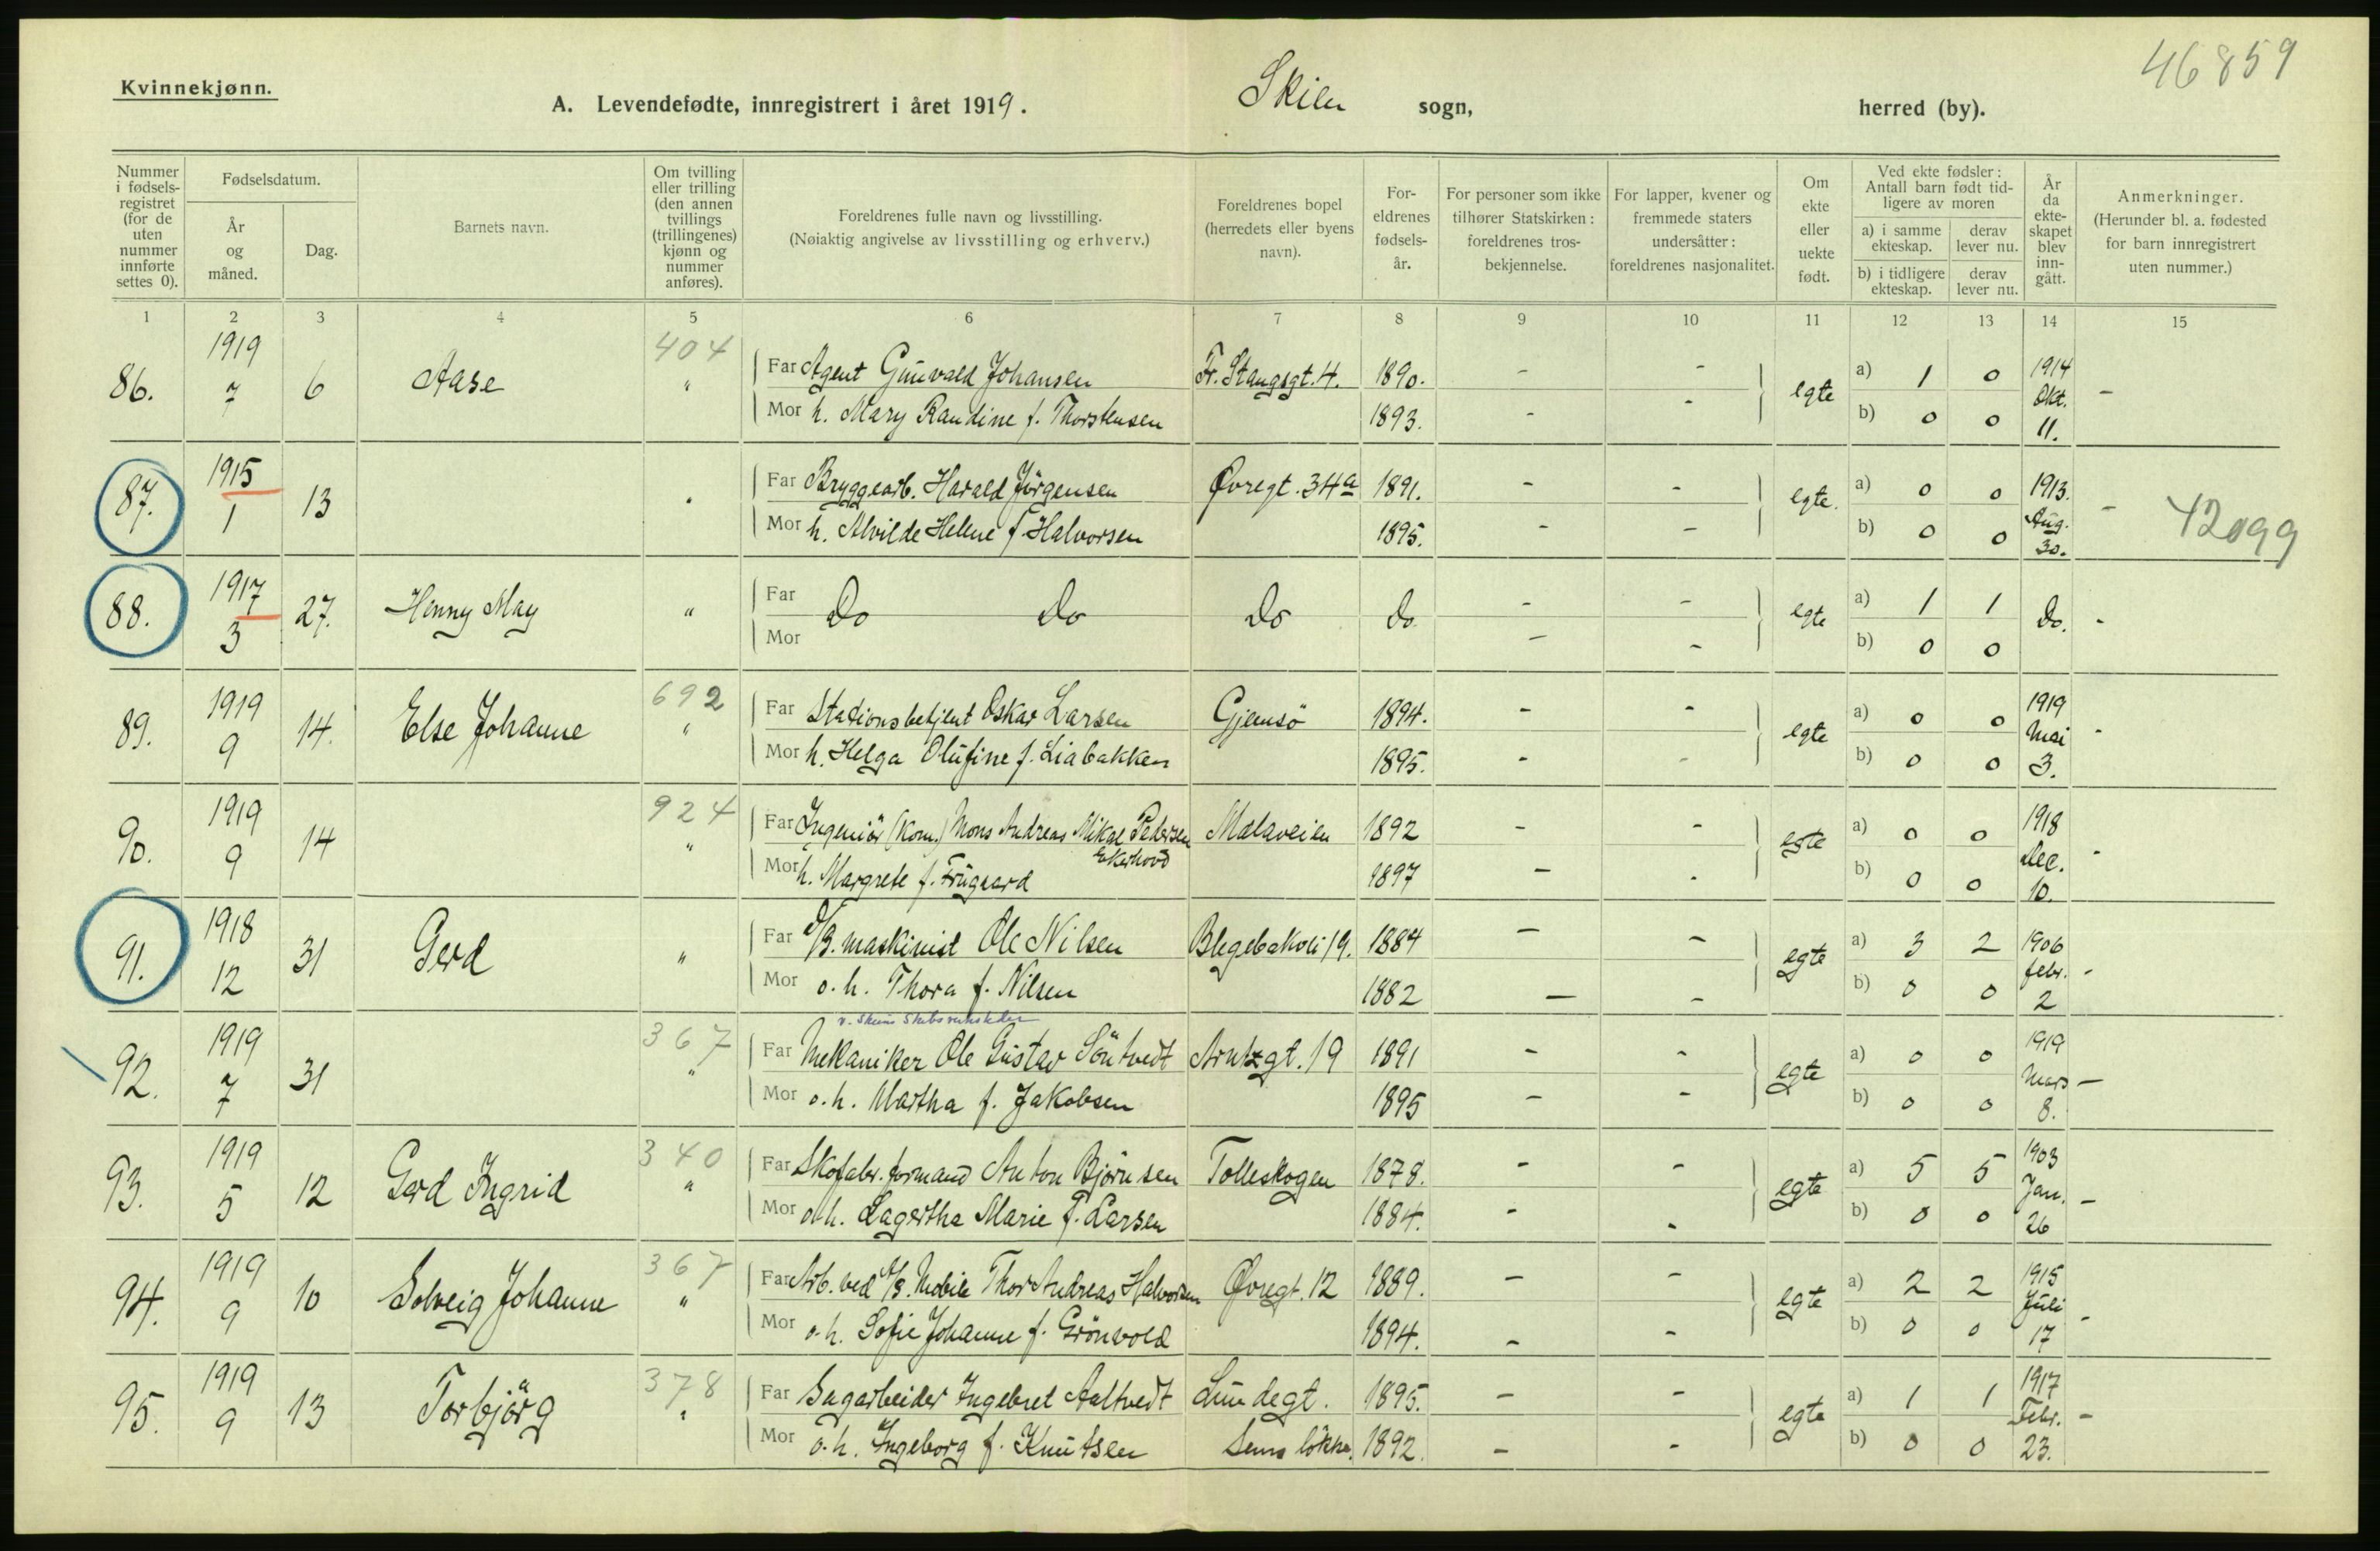 46859
Kvinnekjønn.
A. Levendefødte, innregistrert i året 1919. Skien sogn, herred (by).
Nummer i fødsels-registret (for de uten nummer innførte settes 0).
Fødselsdatum.
År og måned.
Dag.
Barnets navn.
Om tvilling eller trilling (den annen tvillings (trillingenes) kjønn og nummer anføres).
Foreldrenes fulle navn og livsstilling.
(Nøiaktig angivelse av livsstilling og erhverv.)
Foreldrenes bopel (herredets eller byens navn).
For-eldrenes fødsels-år.
For personer som ikke tilhører Statskirken: foreldrenes tros-bekjennelse.
For lapper, kvener og fremmede staters undersåtter: foreldrenes nasjonalitet.
Om ekte eller uekte født.
Ved ekte fødsler: Antall barn født tid-ligere av moren
a) i samme ekteskap.
derav lever nu.
b) i tidligere ekteskap.
derav lever nu.
År da ekte-skapet blev inn-gått.
Anmerkninger.
(Herunder bl. a. fødested for barn innregistrert uten nummer.)
1 2 3 4 5 6 7 8 9 10 11 12 13 14 15
86. 1919 7 6 Aase 404 " Far Agent Gunvald Johansen Fr. Stangsgt. 4. 1890. - - egte a) 1 0 1914 Okt. 11. -
Mor h. Mary Randine f. Thorstensen 1893. - - b) 0 0
87. 1915 1 13 " Far Bryggearb. Harald Jörgensen Øvregt. 34a 1891. - - egte. a) 0 0 1913. Aug. 30. - 42099
Mor h. Alvilde Helene f. Halvorsen 1895. - - b) 0 0
88. 1917 3 27. Henny May " Far Do Do Do Do - - egte a) 1 1 Do. -
Mor - - b) 0 0
89. 1919 9 14. Else Johanne 692 " Far Stationsbetjent Oskar Larsen Gjemsö 1894. - - egte a) 0 0 1919 Mai 3. -
Mor h. Helga Olufine f. Liabakken 1895. - - b) 0 0
90. 1919 9 14 924 " Far Ingeniör (Kom.) Mons Andreas Mikal Pedersen Ekerhovd Mælaveien 1892 - - egte a) 0 0 1918 Dec. 10. -
Mor h. Margrete f. Frugaard 1897 - - b) 0 0
91. 1918 12 31 Gerd " Far D/B. maskinist Ole Nilsen Blegebakoli 19. 1884 - - egte a) 3 2 1906 febr. 2 -
Mor o. h. Thora f. Nilsen 1882 - - b) 0 0
v. Skiens Skibsverksteder
92. 1919 7 31 367 " Far Mekaniker Ole Gustav Söntvedt Arntzgt. 19 1891 - - egte a) 0 0 1919 Mars 8. -
Mor o. h. Martha f. Jakobsen 1895 - - b) 0 0
93. 1919 5 12 Gerd Ingrid 340 " Far Skofabr. formand Anton Björnsen Tolleskogen 1878. - - egte a) 5 5 1903 Jan. 26 -
Mor o. h. Lagertha Marie f. Larsen 1884. - - b) 0 0
94. 1919 9 10 Solveig Johanne 367 " Far Arb. ved A/S. Mobile Thor Andreas Halvorsen Øvregt. 12 1889. - - egte a) 2 2 1915 Juli 17 -
Mor o. h. Sofie Johanne f. Grönvold 1894. - - b) 0 0
95. 1919 9 13 Torbjörg 378 " Far Sagarbeider Ingebret Aaltvedt Lundegt. 1895. - - egte a) 1 1 1917 Febr. 23. -
Mor o. h. Ingeborg f. Knutsen Sems lökke. 1892. - - b) 0 0